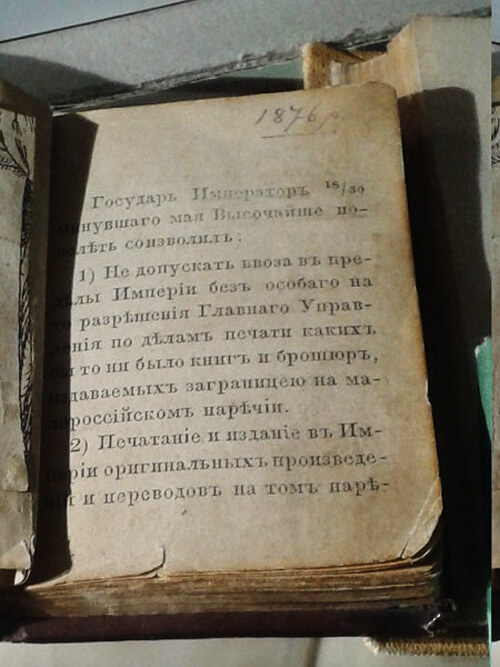 1876 г.
Государь Императоръ 18/30
минувшаго мая Высочайше по-
велѣть соизволилъ:
1) Не допускать ввоза въ пре-
дѣлы Имперіи безъ особаго на
то разрѣшенія Главнаго Управ-
ленія по дѣламъ печати какихъ
бы то ни было книгъ и брошюръ,
издаваемыхъ заграницею на ма-
лороссійскомъ нарѣчіи.
2) Печатаніе и изданіе въ Им-
періи оригинальныхъ произведе-
ній и переводовъ на томъ нарѣ-